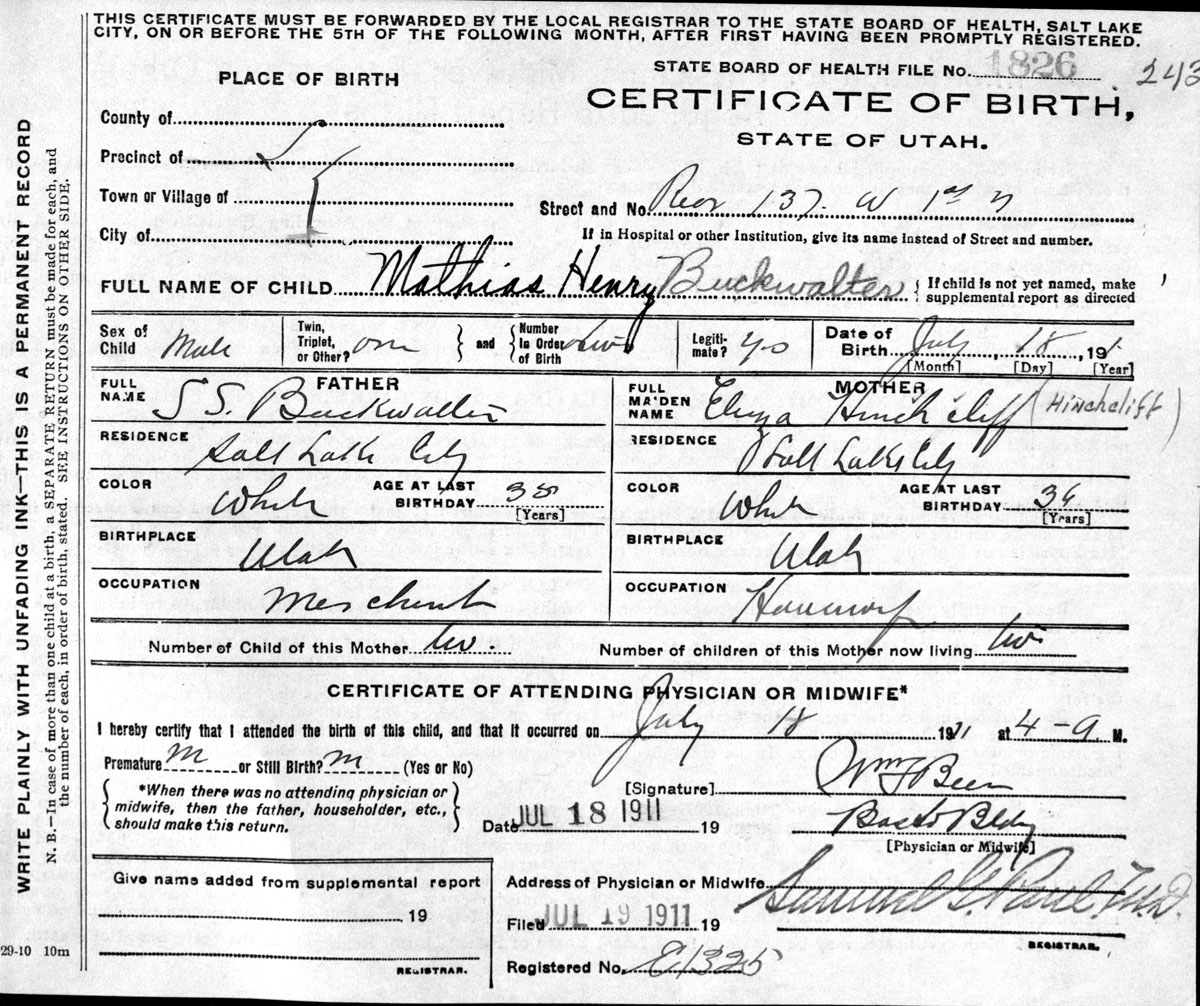 THIS CERTIFICATE MUST BE FORWARDED BY THE LOCAL REGISTRAR TO THE STATE BOARD OF HEALTH, SALT LAKE
CITY, ON OR BEFORE THE 5TH OF THE FOLLOWING MONTH, AFTER FIRST HAVING BEEN PROMPTLY REGISTERED.
STATE BOARD OF HEALTH FILE No. 1826 243
PLACE OF BIRTH
CERTIFICATE OF BIRTH,
STATE OF UTAH.
County of
Precinct of
Town or Village of
City of
Street and No. Rear 137. W 1st N
If in Hospital or other Institution, give its name instead of Street and number.
FULL NAME OF CHILD Mathias Henry Buckwalter { If child is not yet named, make
supplemental report as directed
Sex of Child Male
Twin, Triplet, or Other? one } and { Number In Order of Birth two
Legiti- mate? yes
Date of Birth July, 18, 191
[Month] [Day] [Year]
FATHER
FULL NAME S S. Buckwalter
RESIDENCE Salt Lake City
COLOR White AGE AT LAST BIRTHDAY 38 [Years]
BIRTHPLACE Utah
OCCUPATION Merchant
MOTHER
FULL MAIDEN NAME Eliza Hinchcliff (Hinchcliff)
RESIDENCE Salt Lake City
COLOR White AGE AT LAST BIRTHDAY 34 [Years]
BIRTHPLACE Utah
OCCUPATION Housewife
Number of Child of this Mother two. Number of children of this Mother now living two
CERTIFICATE OF ATTENDING PHYSICIAN OR MIDWIFE*
I hereby certify that I attended the birth of this child, and that it occurred on July 18 1911 at 4-a M.
Premature or Still Birth? (Yes or No)
{ *When there was no attending physician or
midwife, then the father, householder, etc.,
should make this return. }
[Signature] Wm F Beer
Date JUL 18 1911 19 Bldg
[Physician or Midwife]
Give name added from supplemental report
19
REGISTRAR.
Address of Physician or Midwife
Filed JUL 19 1911 19 Samuel G. Paul. M.D
REGISTRAR.
Registered No. E1325
29-10 10m
WRITE PLAINLY WITH UNFADING INK—THIS IS A PERMANENT RECORD
N. B.—In case of more than one child at a birth, a SEPARATE RETURN must be made for each, and
the number of each, in order of birth, stated. SEE INSTRUCTIONS ON OTHER SIDE.